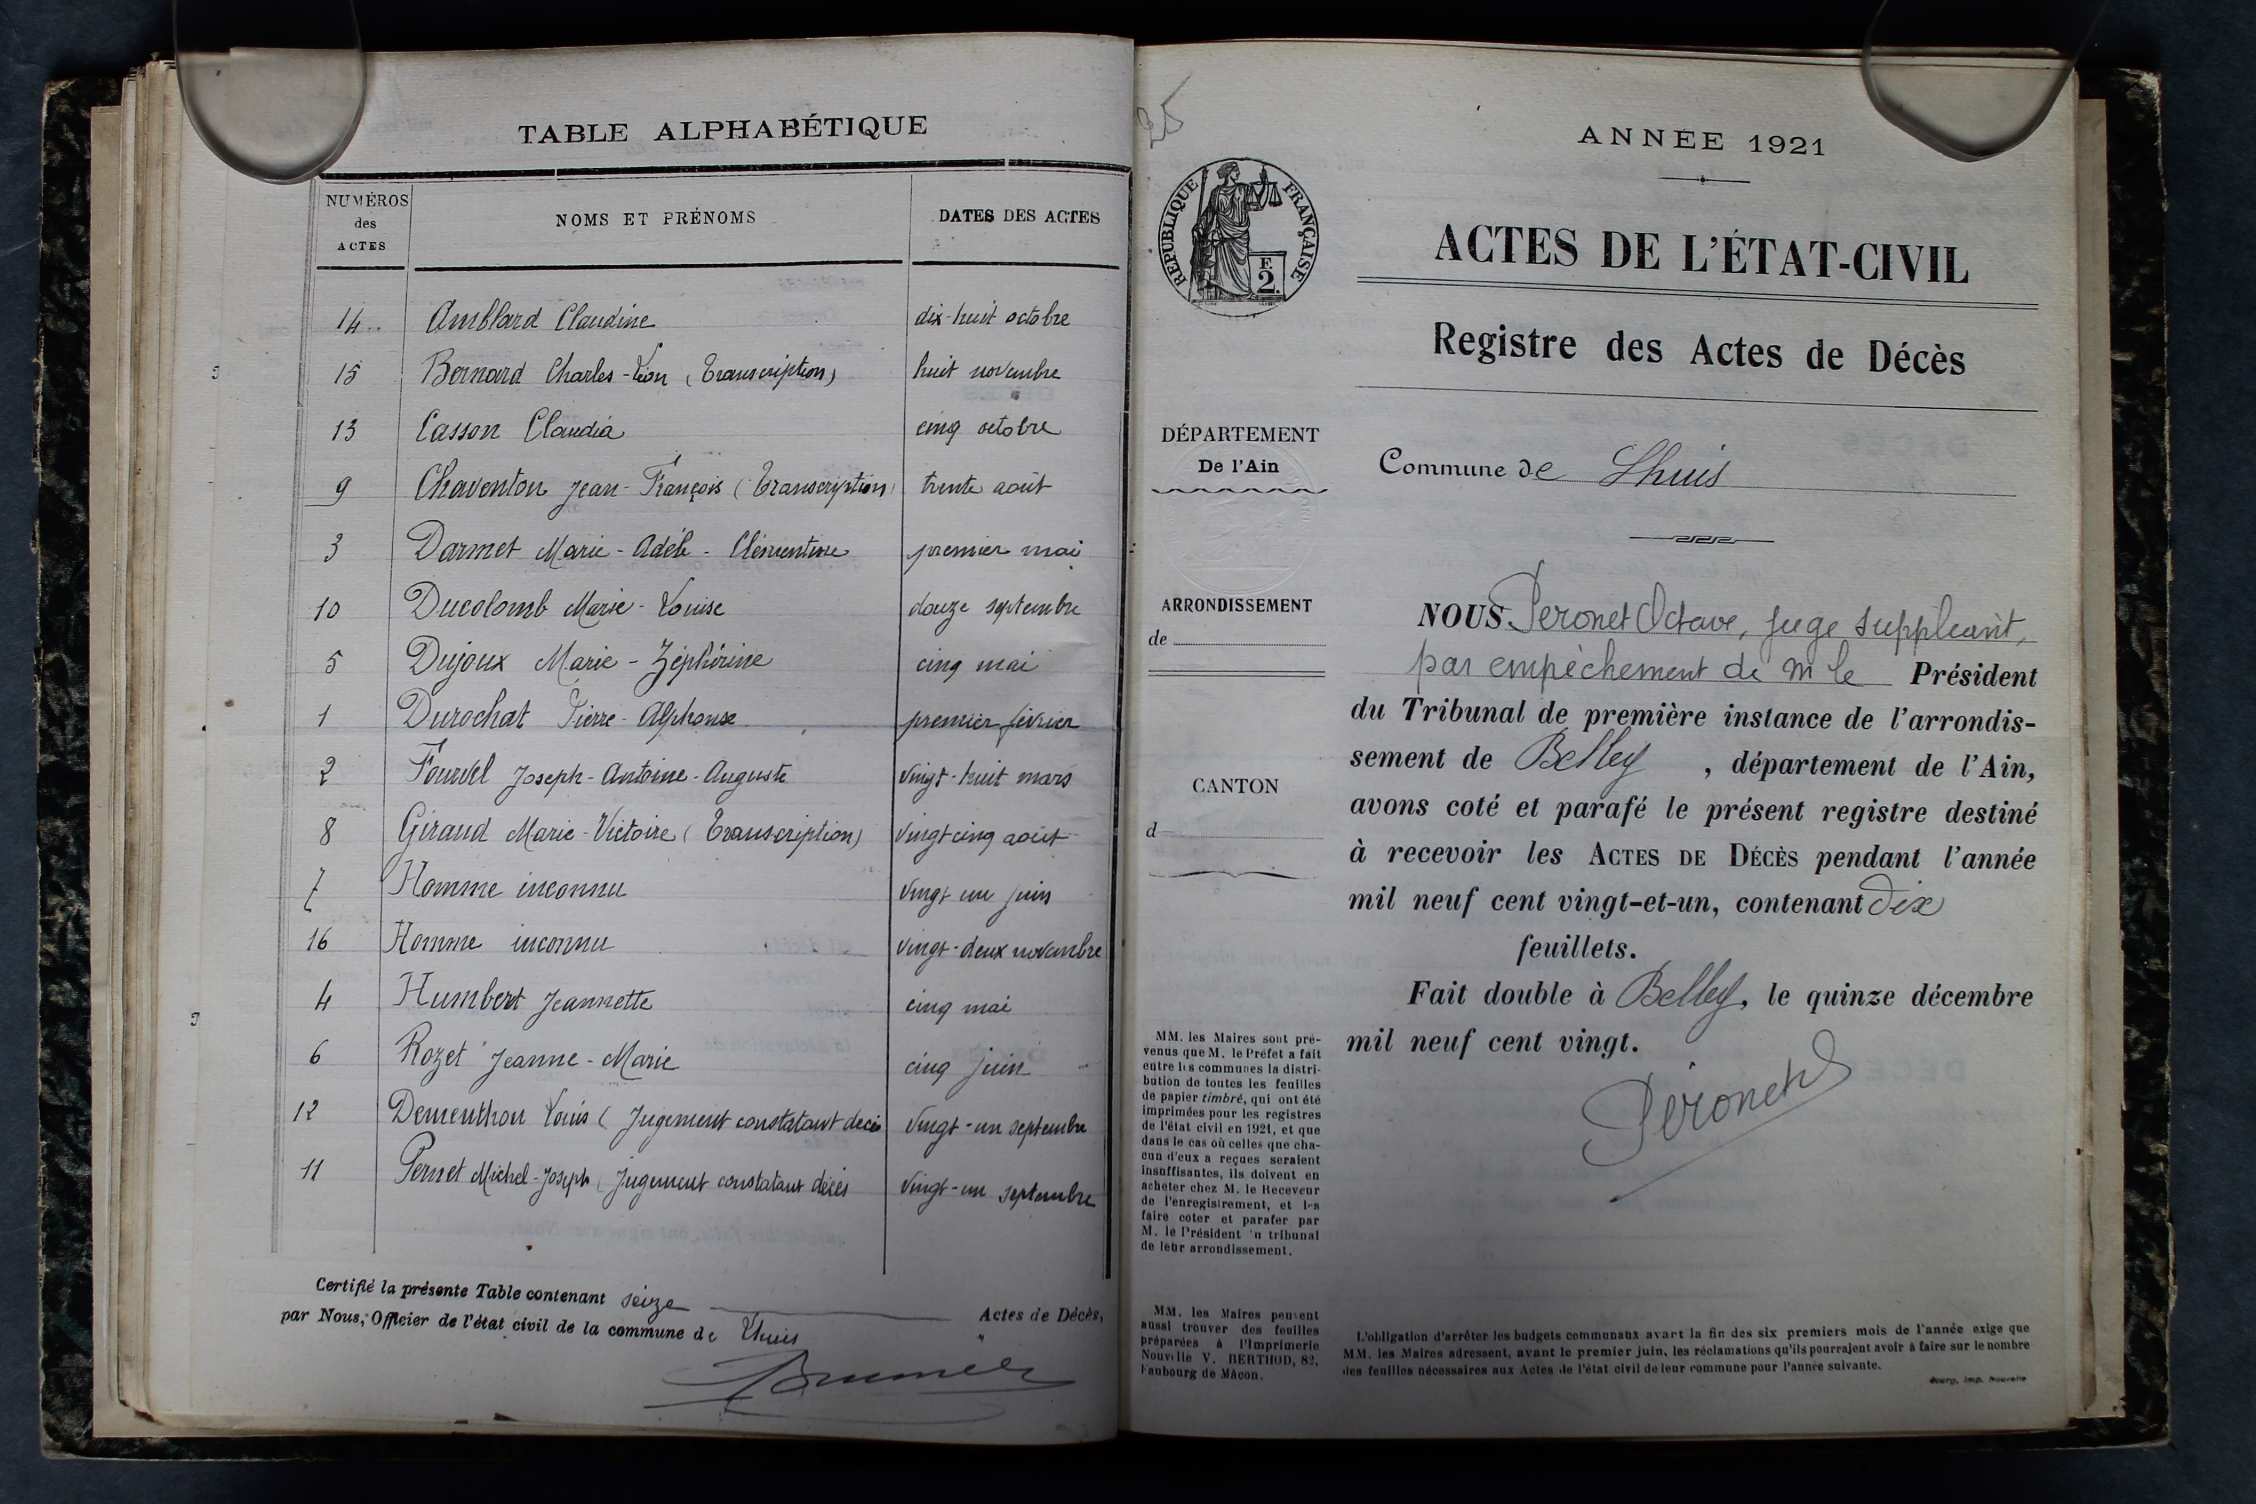 TABLE ALPHABÉTIQUE
NUMÉROS
des
ACTES
NOMS ET PRÉNOMS
DATES DES ACTES
14 Amblard Claudine dix-huit octobre
15 Bernard Charles-Léon (Transcription) huit novembre
13 Casson Claudia cinq octobre
9 Chaventon Jean-François (Transcription) trente août
3 Darmet Marie-Adèle-Clémentine premier mai
10 Ducolomb Marie-Louise douze septembre
5 Dujoux Marie-Zéphirine cinq mai
1 Durochat Pierre-Alphonse premier février
2 Fourvel Joseph-Antoine-Auguste vingt-huit mars
8 Giraud Marie-Victoire (Transcription) vingt cinq août
7 Homme inconnu vingt un juin
16 Homme inconnu vingt-deux novembre
4 Humbert Jeannette cinq mai
6 Rozet Jeanne-Marie cinq juin
12 Dementhon Louis (Jugement constatant décès vingt-un septembre
11 Pernet Michel-Joseph (Jugement constatant décès vingt-un septembre
Certifié la présente Table contenant seize Actes de Décès,
par Nous, Officier de l'état civil de la commune de Lhuis
25
ANNÉE 1921
RÉPUBLIQUE FRANÇAISE
F.
2.
ACTES DE L'ÉTAT-CIVIL
Registre des Actes de Décès
DÉPARTEMENT
De l'Ain
Commune de Lhuis
ARRONDISSEMENT
de
CANTON
d
NOUS Peronet Octave, juge suppléant,
par empêchement de M le Président
du Tribunal de première instance de l'arrondis-
sement de Belley, département de l'Ain,
avons coté et parafé le présent registre destiné
à recevoir les ACTES DE DÉCÈS pendant l'année
mil neuf cent vingt-et-un, contenant dix
feuillets.
Fait double à Belley, le quinze décembre
mil neuf cent vingt.
Péronet
MM. les Maires sont pré-
venus que M. le Préfet a fait
entre les communes la distri-
bution de toutes les feuilles
de papier timbré, qui ont été
imprimées pour les registres
de l'état civil en 1921, et que
dans le cas où celles que cha-
cun d'eux a reçues seraient
insuffisantes, ils doivent en
acheter chez M. le Receveur
de l'enregistrement, et les
faire coter et parafer par
M. le Président du tribunal
de leur arrondissement.
MM. les Maires peuvent
aussi trouver des feuilles
préparées à l'Imprimerie
Nouvelle V. BERTHOD, 82,
Faubourg de Mâcon.
L'obligation d'arrêter les budgets communaux avant la fin des six premiers mois de l'année exige que
MM. les Maires adressent, avant le premier juin, les réclamations qu'ils pourraient avoir à faire sur le nombre
des feuilles nécessaires aux Actes de l'état civil de leur commune pour l'année suivante.
Bourg, Imp. Nouvelle